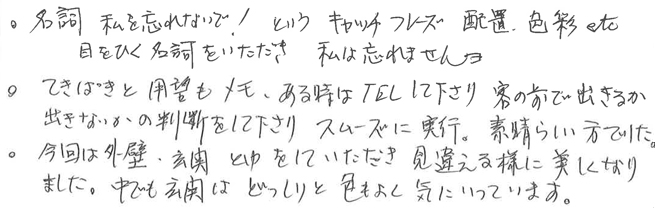 ○ 名詞 私を忘れないで! という キャッチフレーズ 配置.色彩 etc
目をひく名詞をいただき 私は忘れませんョ
○ てきぱきと 用望もメモ、ある時はTELして下さり 客の前で出きるか
出きないかの判断をして下さり スムーズに実行。素晴らしい方でした。
○ 今回は外壁・玄関 とゆをしていただき 見違える様に美しくなり
ました。中でも玄関は どっしりと色もよく気にいっています。